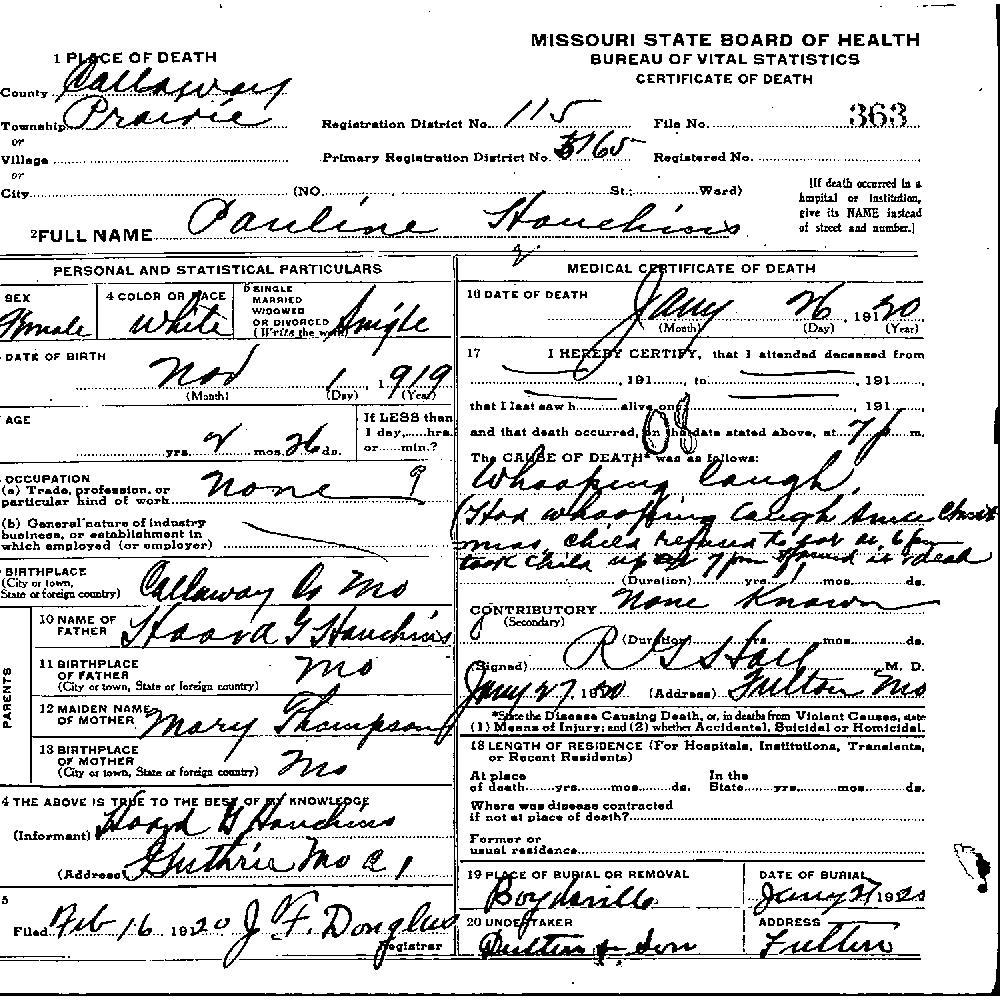 MISSOURI STATE BOARD OF HEALTH
BUREAU OF VITAL STATISTICS
CERTIFICATE OF DEATH
1 PLACE OF DEATH
County Callaway
Township Prairie
or
Village
or
City (NO. St.; Ward)
Registration District No. 115 File No. 363
Primary Registration District No. 5165 Registered No.
[If death occurred in a
hospital or institution,
give its NAME instead
of street and number.]
2 FULL NAME Pauline Houchins
PERSONAL AND STATISTICAL PARTICULARS
SEX Female
4 COLOR OR RACE White
5 SINGLE
MARRIED
WIDOWED
OR DIVORCED
(Write the word) Single
DATE OF BIRTH
Nov 1, 1919
(Month) (Day) (Year)
AGE
yrs. 2 mos. 26 ds.
If LESS than
1 day, hrs.
or min.?
OCCUPATION
(a) Trade, profession, or
particular kind of work none 9
(b) General nature of industry
business, or establishment in
which employed (or employer)
BIRTHPLACE
(City or town,
State or foreign country) Callaway Co Mo
PARENTS
10 NAME OF
FATHER G Houchins
11 BIRTHPLACE
OF FATHER
(City or town, State or foreign country) Mo
12 MAIDEN NAME
OF MOTHER Mary Thompson
13 BIRTHPLACE
OF MOTHER
(City or town, State or foreign country) Mo
4 THE ABOVE IS TRUE TO THE BEST OF MY KNOWLEDGE
(Informant) G Houchins
(Address) Guthrie Mo
5
Filed Feb 16 1920 J. F. Douglas
Registrar
MEDICAL CERTIFICATE OF DEATH
16 DATE OF DEATH
Jany 26, 19120
(Month) (Day) (Year)
17 I HEREBY CERTIFY, that I attended deceased from
, 191 , to , 191 ,
that I last saw h alive on , 191 ,
and that death occurred, on the date stated above, at 7 P m.
08
The CAUSE OF DEATH* was as follows:
Whooping Cough,
(Had whooping Cough since Christ
mas, child refused to eat at 6 pm
took child up at 7 pm & found it dead
(Duration) yrs. mos. ds.
CONTRIBUTORY None Known
(Secondary)
(Duration) yrs. mos. ds.
(Signed) R G Hall M. D.
Jany 27, 1920 (Address) Fulton Mo
*State the Disease Causing Death, or, in deaths from Violent Causes, state
(1) Means of Injury; and (2) whether Accidental, Suicidal or Homicidal.
18 LENGTH OF RESIDENCE (For Hospitals, Institutions, Transients,
or Recent Residents)
At place
of death yrs. mos. ds.
In the
State yrs. mos. ds.
Where was disease contracted
if not at place of death?
Former or
usual residence
19 PLACE OF BURIAL OR REMOVAL
Boydsville
DATE OF BURIAL
Jany 27 1920
20 UNDERTAKER
& Son
ADDRESS
Fulton